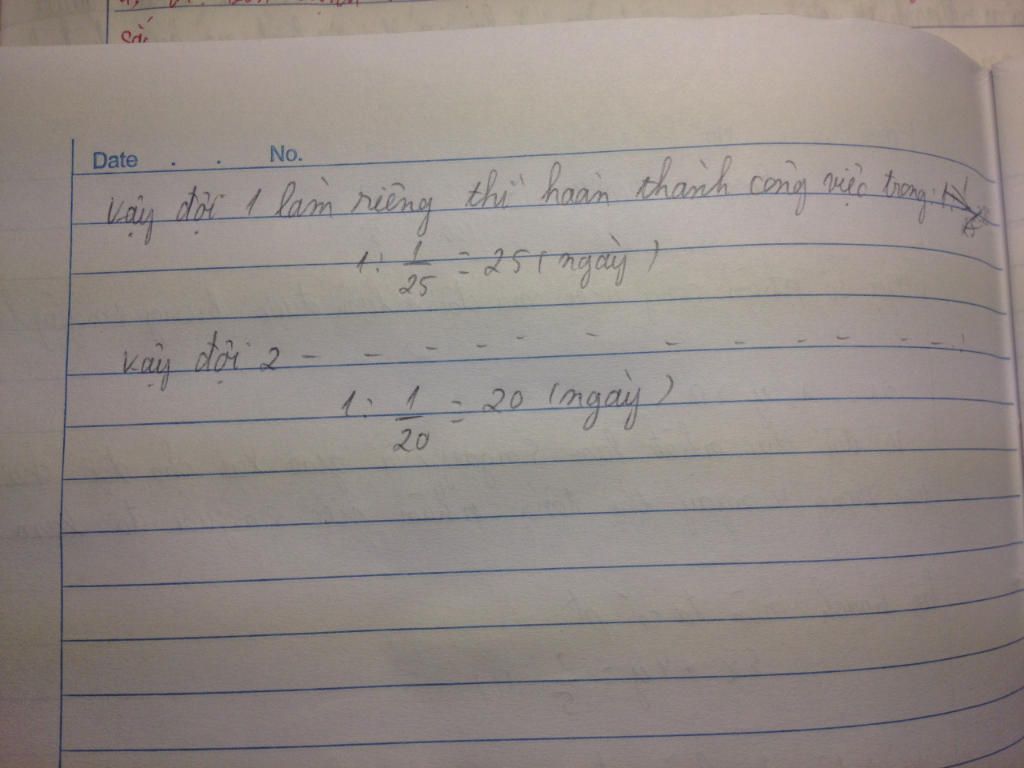 Số
Date . . No.
Vậy đội 1 làm riêng thì hoàn thành công việc trong:
1 : 1/25 = 25 (ngày)
Vậy đội 2 - - - - - - - - - - - - :
1 : 1/20 = 20 (ngày)